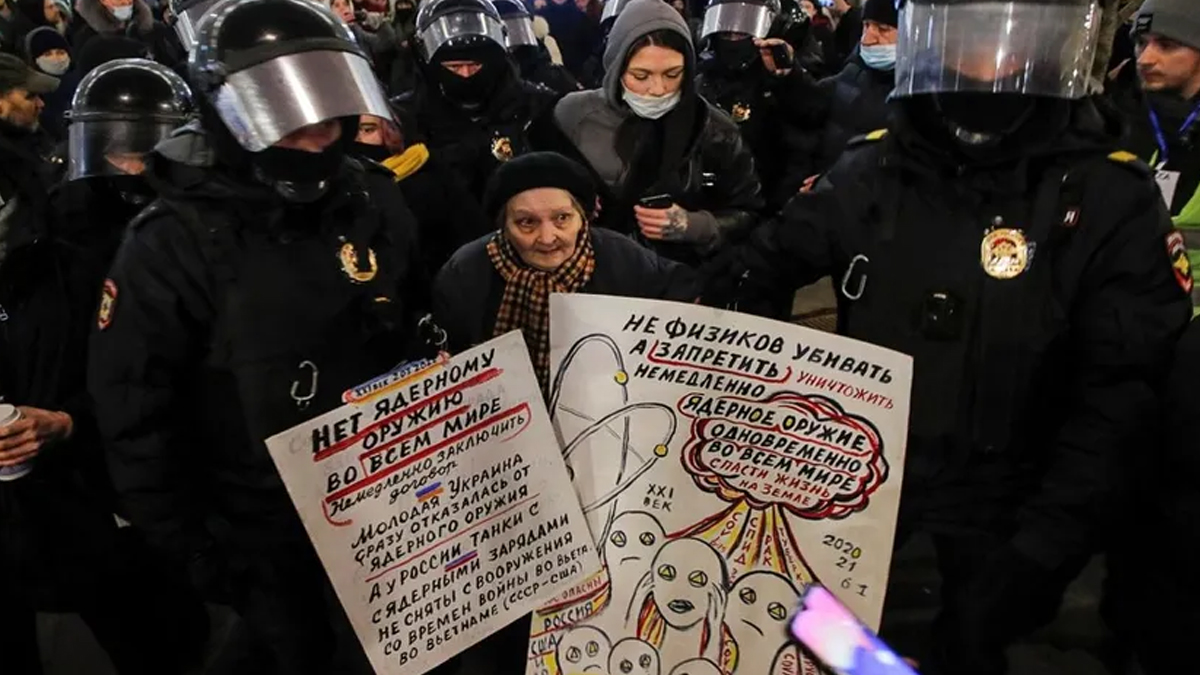 НЕТ ЯДЕРНОМУ
ОРУЖИЮ
ВО ВСЕМ МИРЕ
НЕМЕДЛЕННО ЗАКЛЮЧИТЬ
ДОГОВОР
МОЛОДАЯ УКРАИНА
СРАЗУ ОТКАЗАЛАСЬ ОТ
ЯДЕРНОГО ОРУЖИЯ
А У РОССИИ ТАНКИ С
ЯДЕРНЫМИ ЗАРЯДАМИ
НЕ СНЯТЫ С ВООРУЖЕНИЯ
СО ВРЕМЕН ВОЙНЫ ВО ВЬЕТА.
ВО ВЬЕТНАМЕ (СССР-США)
НЕ ФИЗИКОВ УБИВАТЬ
А ЗАПРЕТИТЬ УНИЧТОЖИТЬ
НЕМЕДЛЕННО
ЯДЕРНОЕ ОРУЖИЕ
ОДНОВРЕМЕННО
ВО ВСЕМ МИРЕ
СПАСТИ ЖИЗНЬ
НА ЗЕМЛЕ
XXI
ВЕК
СПИД
РАК
2020
21
6 I
РОССИЯ
США